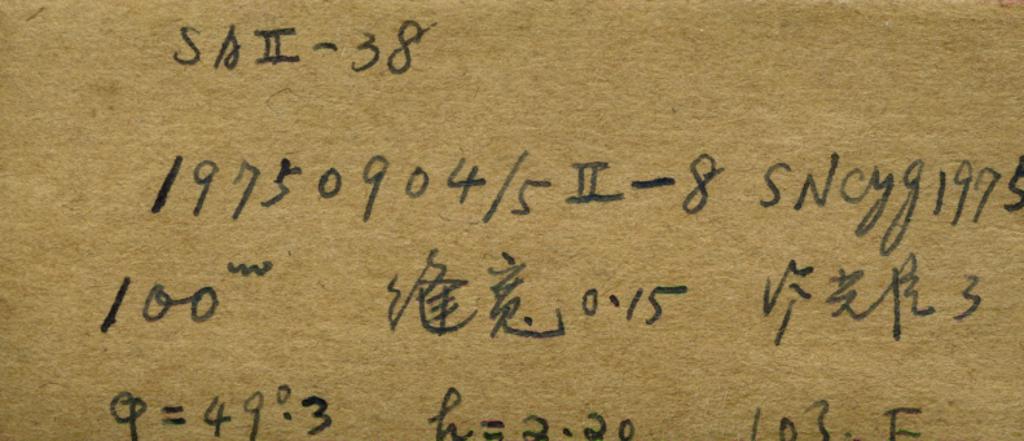 SAII-38
19750904/5 II-8 SNCyg1975
100ᵐ 缝宽 0.15 光 3
φ=49°.3 h=2.20 103.